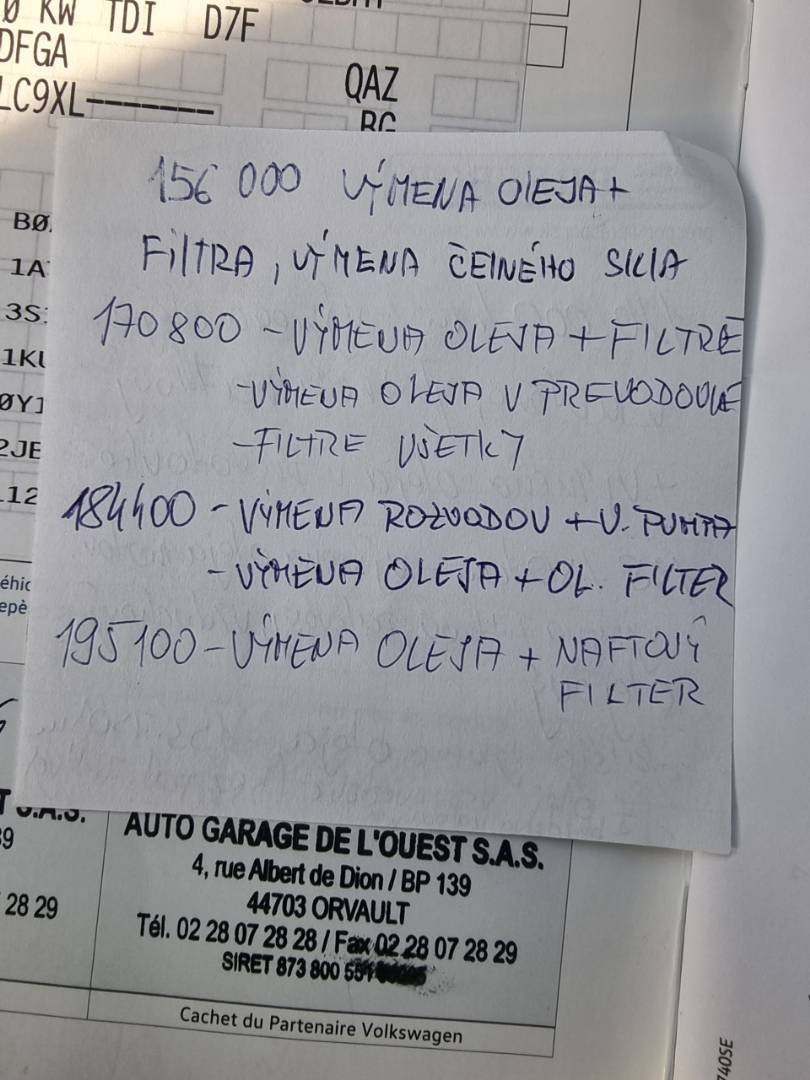 KW TDI D7F
DFGA
LC9XL-------
QAZ
BG
156 000 VÝMENA OLEJA +
FILTRA, VÝMENA ČELNÉHO SKLA
170 800 - VÝMENA OLEJA + FILTRE
- VÝMENA OLEJA V PREVODOVKE
- FILTRE VŠETKY
184400 - VÝMENA ROZVODOV + V. PUMPA
- VÝMENA OLEJA + OL. FILTER
195100 - VÝMENA OLEJA + NAFTOVÝ
FILTER
BØ
1A
3S
1KU
ØY1
2JE
12
S.A.S.
28 29
AUTO GARAGE DE L'OUEST S.A.S.
4, rue Albert de Dion / BP 139
44703 ORVAULT
Tél. 02 28 07 28 28 / Fax 02 28 07 28 29
SIRET 873 800 551
Cachet du Partenaire Volkswagen
740SE